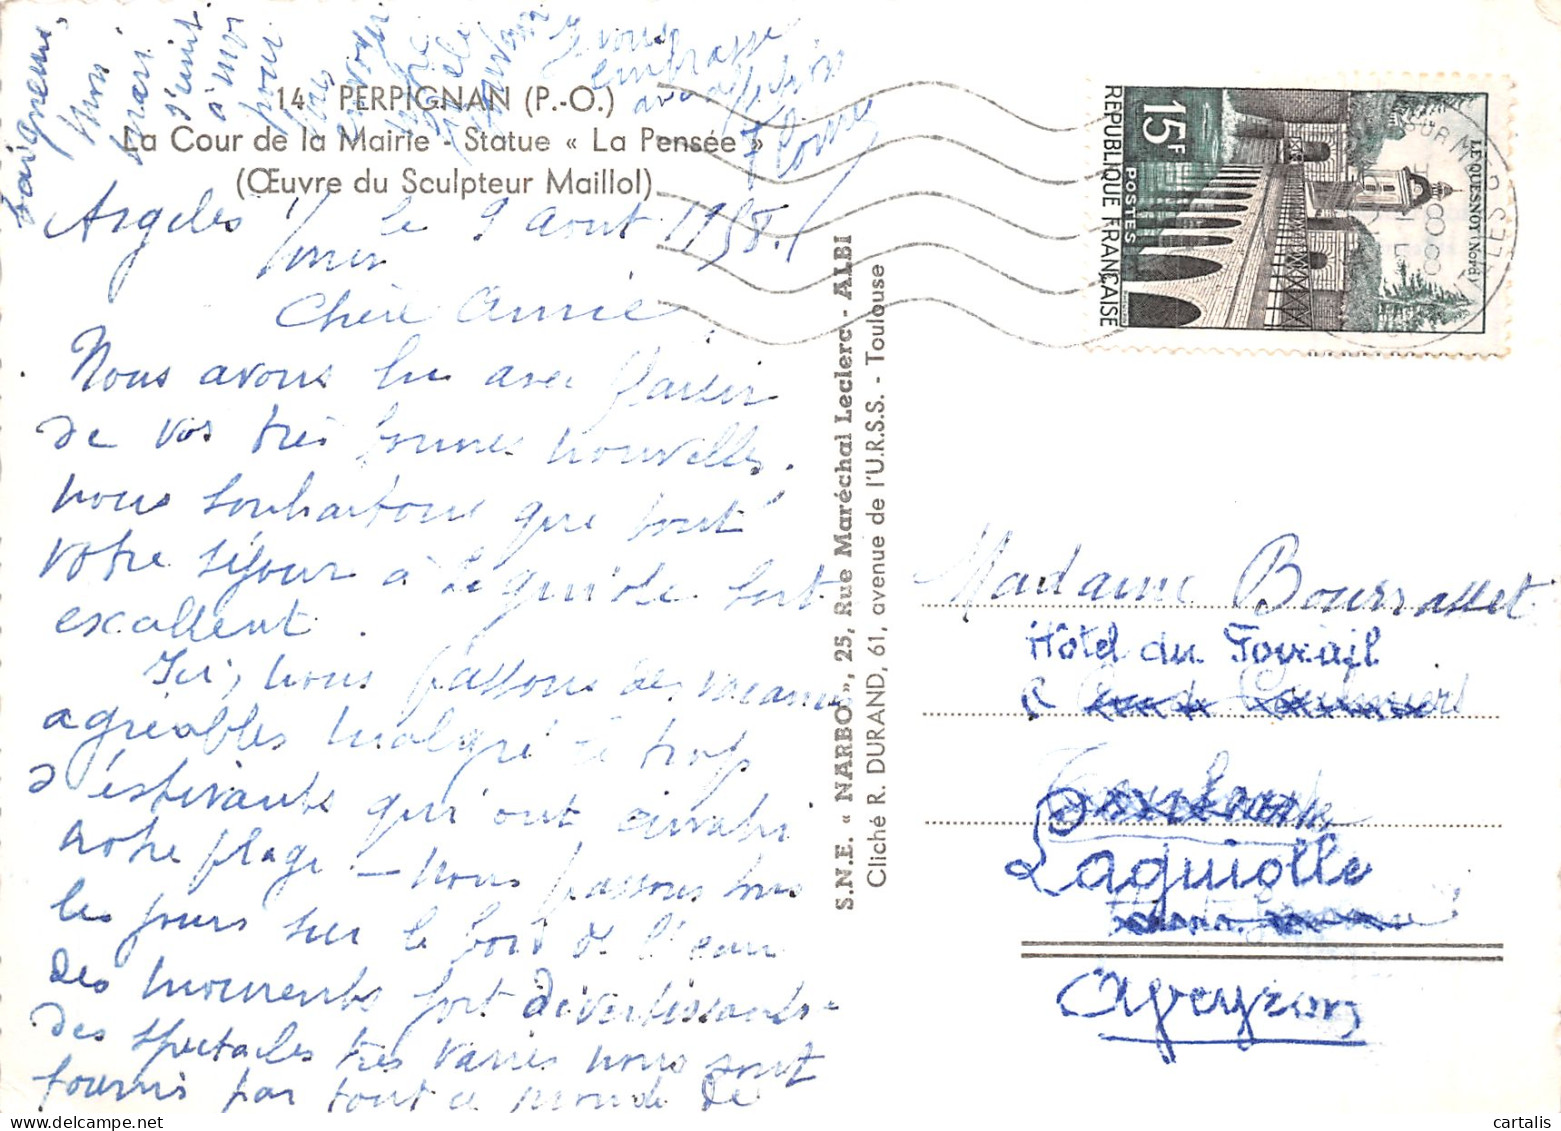 14. PERPIGNAN (P.-O.)
La Cour de la Mairie - Statue « La Pensée »
(Œuvre du Sculpteur Maillol)
Argelès s/ le 9 Août 1958.
mer
Chère Amie
Nous avons lu avec plaisir
de vos très bonnes nouvelles.
nous souhaitons que tout
votre séjour à Laguiole soit
excellent.
Ici, nous passons des vacances
agréables malgré le trop
d'estivants qui ont envahi
notre plage — Nous passons tous
les jours sur le bord de l'eau
des moments fort divertissants -
des spectacles très variés nous sont
fournis par tout ce monde de
baigneurs.
Mon
mari
s'unit
à moi
pour
vous
envoyer
notre
Je vous
embrasse
avec affection
S.N.E. « NARBO », 25, Rue Maréchal Leclerc - ALBI
Cliché R. DURAND, 61, avenue de l'U.R.S.S. - Toulouse
15F
POSTES
REPUBLIQUE FRANÇAISE
LE QUESNOY (Nord)
Madame Bourrasset
Hôtel du Foirail
Laguiolle
Aveyron
cartalis